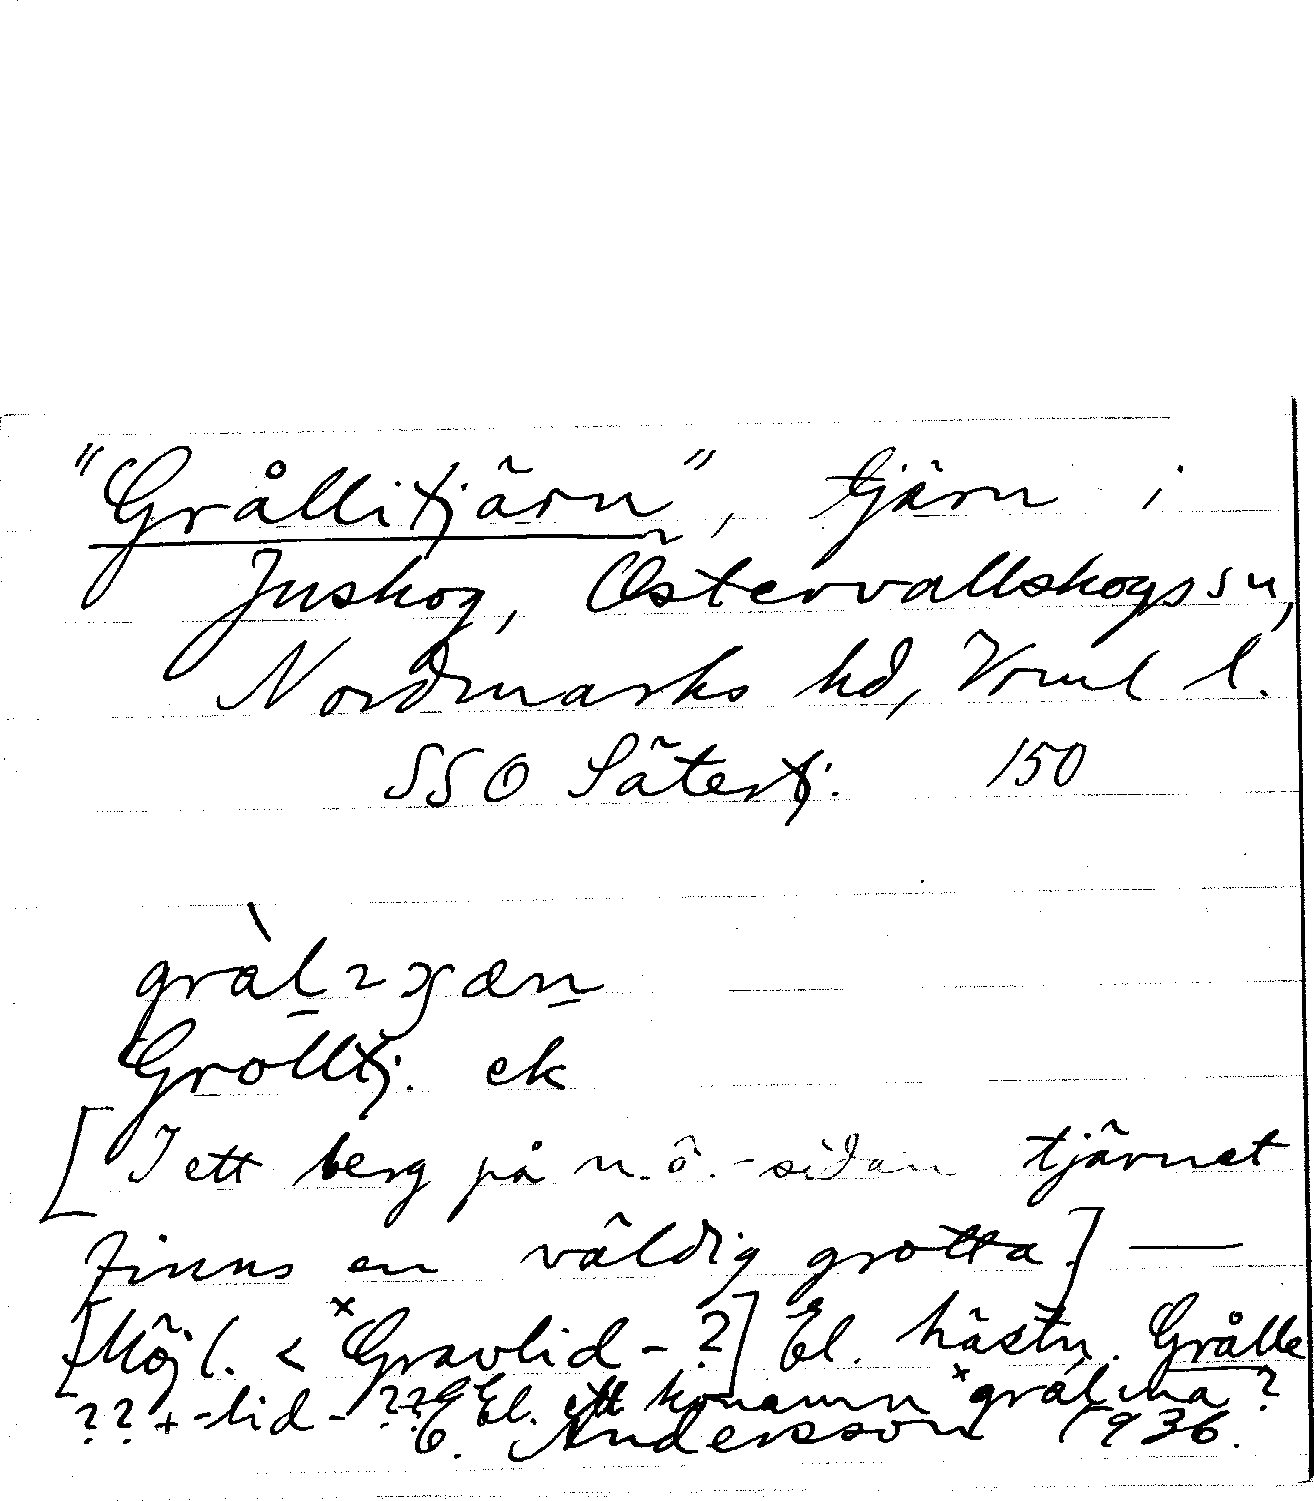 "Grållitjärn", tjärn i
Juskog, Östervallskogs sn,
Nordmarks hd, Vrml l.
SSO Sätertj. 150
Grolltj. ek
[I ett berg på n.ö.-sidan tjärnet
finns en väldig grotta] —
[Möjl. < ˣGravlid-?] El. hästn. Grålle
?? + -lid- ?? El. ett konamn
E. Andersson 1936.